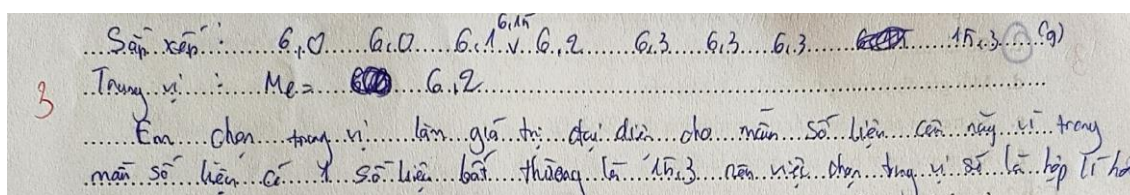 6,15
Sắp xếp : 6,0 6,0 6,1 v 6,2 6,3 6,3 6,3 15,3 (g)
Trung vị : Me = 6,2
3
Em chọn trung vị làm giá trị đại diện cho mẫu số liệu cân này vì trong
mẫu số liệu có 1 số liệu bất thường là 15,3 nên việc chọn trung vị sẽ là hợp lí